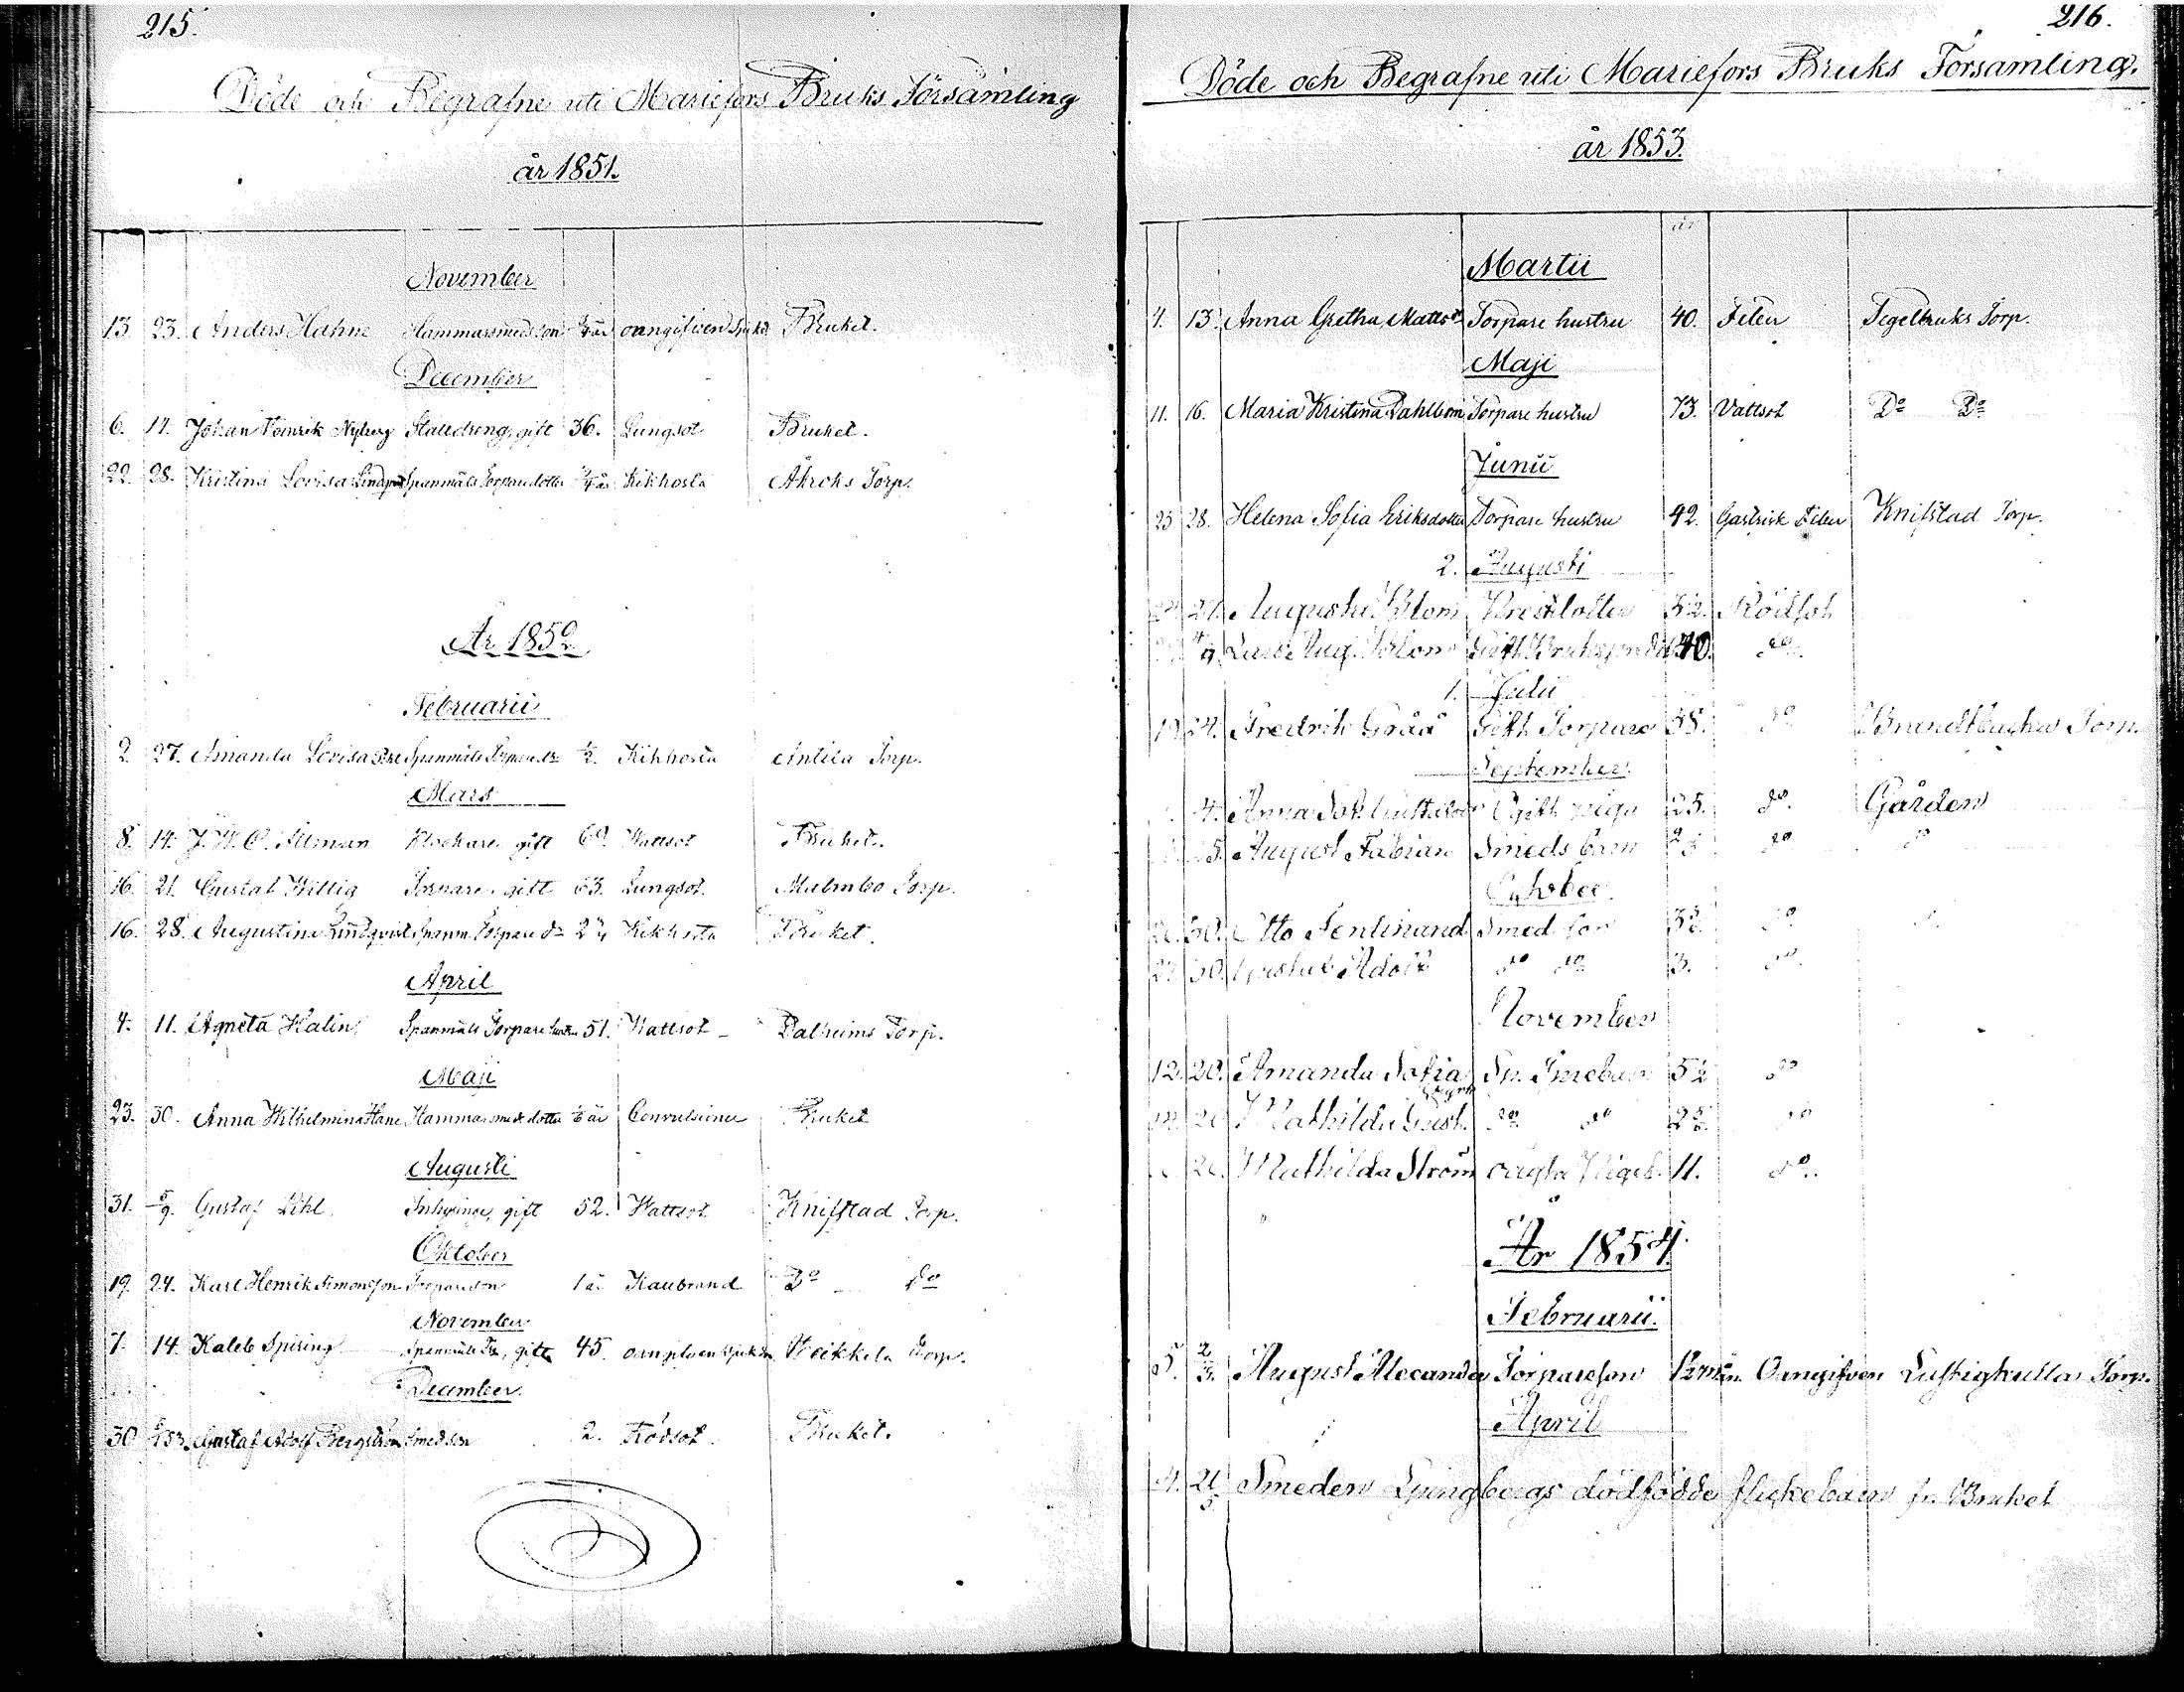 215.
Döde och Begrafne uti Mariefors Bruks Församling
år 1851.
November
13 23. Anders Hahne Hammarsmeds son 1/4 år oangifven sjukd. Bruket.
December
6. 14. Johan Heinrik Nyberg Stalldreng, gift 36. Lungsot Bruket.
22. 28. Kristina Lovisa Lindqvist Spanmåls Torpare dotter 1/4 år Kikhosta Åkroks Torp.
År 1852.
Februarii
2. 27. Amanda Lovisa Spanmåls Torpare dr 1/2. Kikhosta Anttila Torp.
Mars
8. 14. J. W. C. Allman Klockare, gift 69. Wattsot Bruket.
16. 21. Gustaf Willig Torpare, gift 63. Lungsot. Malmbo Torp.
16. 28. Augustina Lindqvist Spanm. Torpare dr Kikhosta Bruket.
April
4. 11. Agneta Halin Spanmåls Torpare hustru 51. Wattsot Dalheims Torp.
Maji
23. 30. Anna Wilhelmina Hane Hammarsmeds dotter 1/6 år Convulsioner Bruket
Augusti
31. 5/9. Gustaf Lihl. Inhysing, gift 52. Wattsot Knifstad Torp.
Oktober
19. 24. Karl Henrik Simonsson Torpareson 1 år Kallbrand Do do
November
7. 14. Kaleb Spiring Spanmåls Tr, gift 45. oangifven sjukdm Weikkela Torp.
December.
30 Gustaf Adolf Bergström Smedson 2. Rödsot. Bruket.
216.
Döde och Begrafne uti Mariefors Bruks Församling.
år 1853.
år
Martii
4. 13. Anna Gretha Mattsdr Torpare hustru 40. Feber Tegelbruks Torp.
Maji
11. 16. Maria Kristina Dahlbom Torpare hustru 73. Vattsot Do Do
Junii
25 28. Helena Sofia Eriksdotter Torpare hustru 42. Gastrisk Feber Knifstad Torp.
2. Augusti
27. Augusta Blom 32. Rödsot
4/9 Aug. Blom Gift 40. do.
1. Julii
19. 24. Fredrik Gråå Gift Torpare 38. do Brandtbacka Torp.
September.
4. Anna Ogift piga 25. do. Gården
25. August Fabian Smeds barn do do
October
30. Otto Ferdinand Smed son do
27. 30. Gustaf Adolf do do 3. do.
November
12. 20. Amanda Sofia 5 1/2 do
20 Mathilda Gust. do do do
20. Mathilda Ström oägta 11. do.
År 1854.
Februarii.
5. 2/3. August Alexander Torpareson Oangifven Lustigkulla Torp.
April
4. 21/5 Smeden Ljungbergs dödfödde flickebarn fr. Bruket